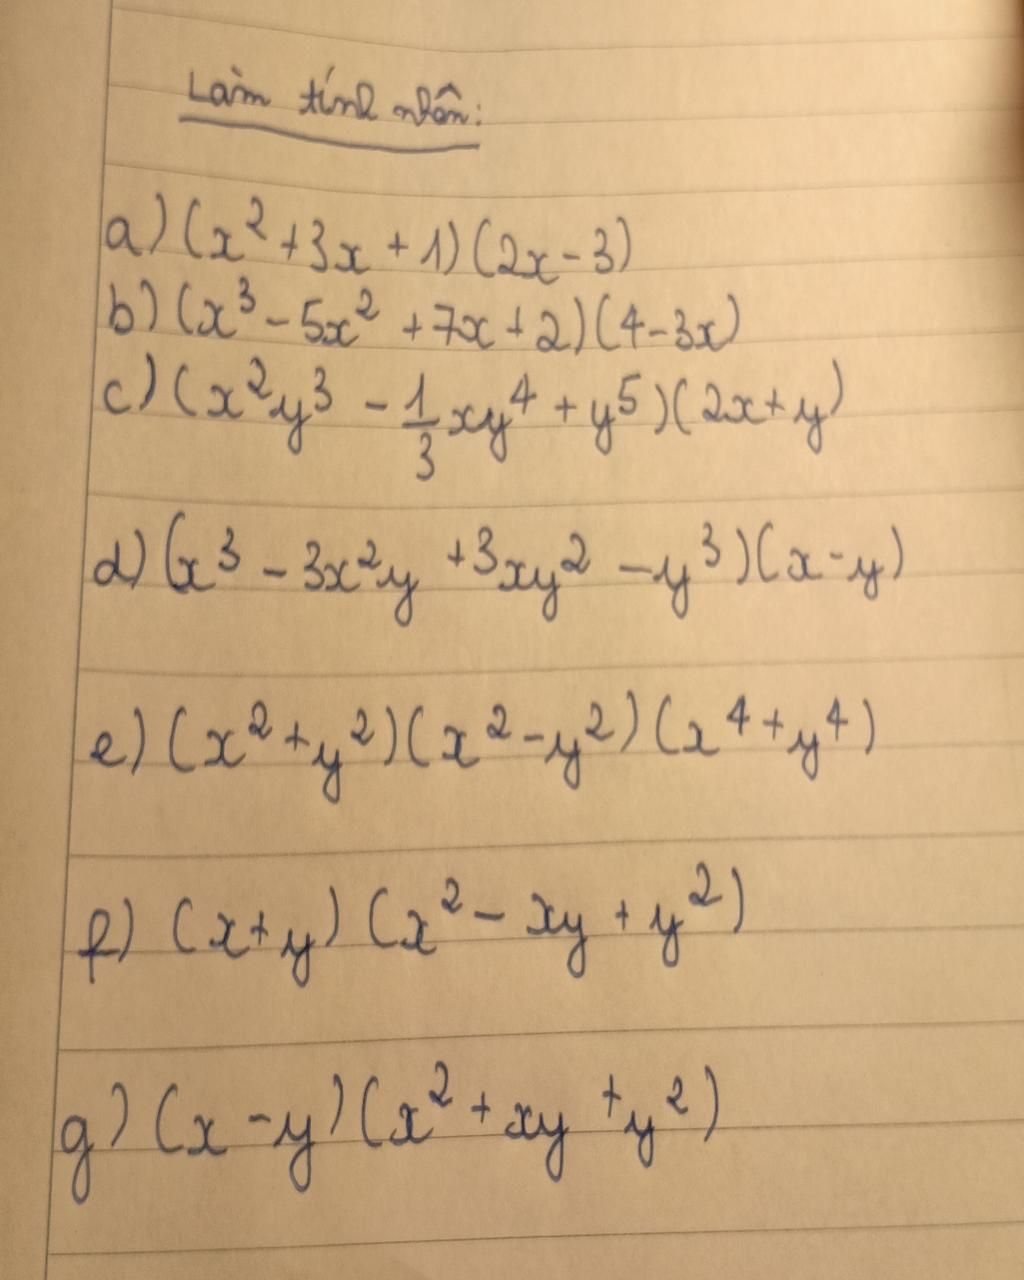 Làm tính nhân:
a) (x² + 3x + 1)(2x - 3)
b) (x³ - 5x² + 7x + 2)(4 - 3x)
c) (x²y³ - 1/3 xy⁴ + y⁵)(2x + y)
d) (x³ - 3x²y + 3xy² - y³)(x - y)
e) (x² + y²)(x² - y²)(x⁴ + y⁴)
f) (x + y)(x² - xy + y²)
g) (x - y)(x² + xy + y²)